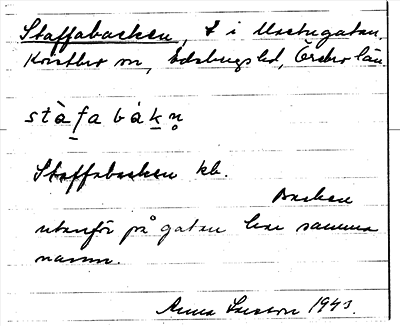 Staffabacken, I i Mostugatan.
Kvistbro sn, Edsbergs hd, Örebro län.
stàfabákn̥
Staffabacken kb.
Backen
utanför på gatan har samma
namn.
Anna Larsson 1943.